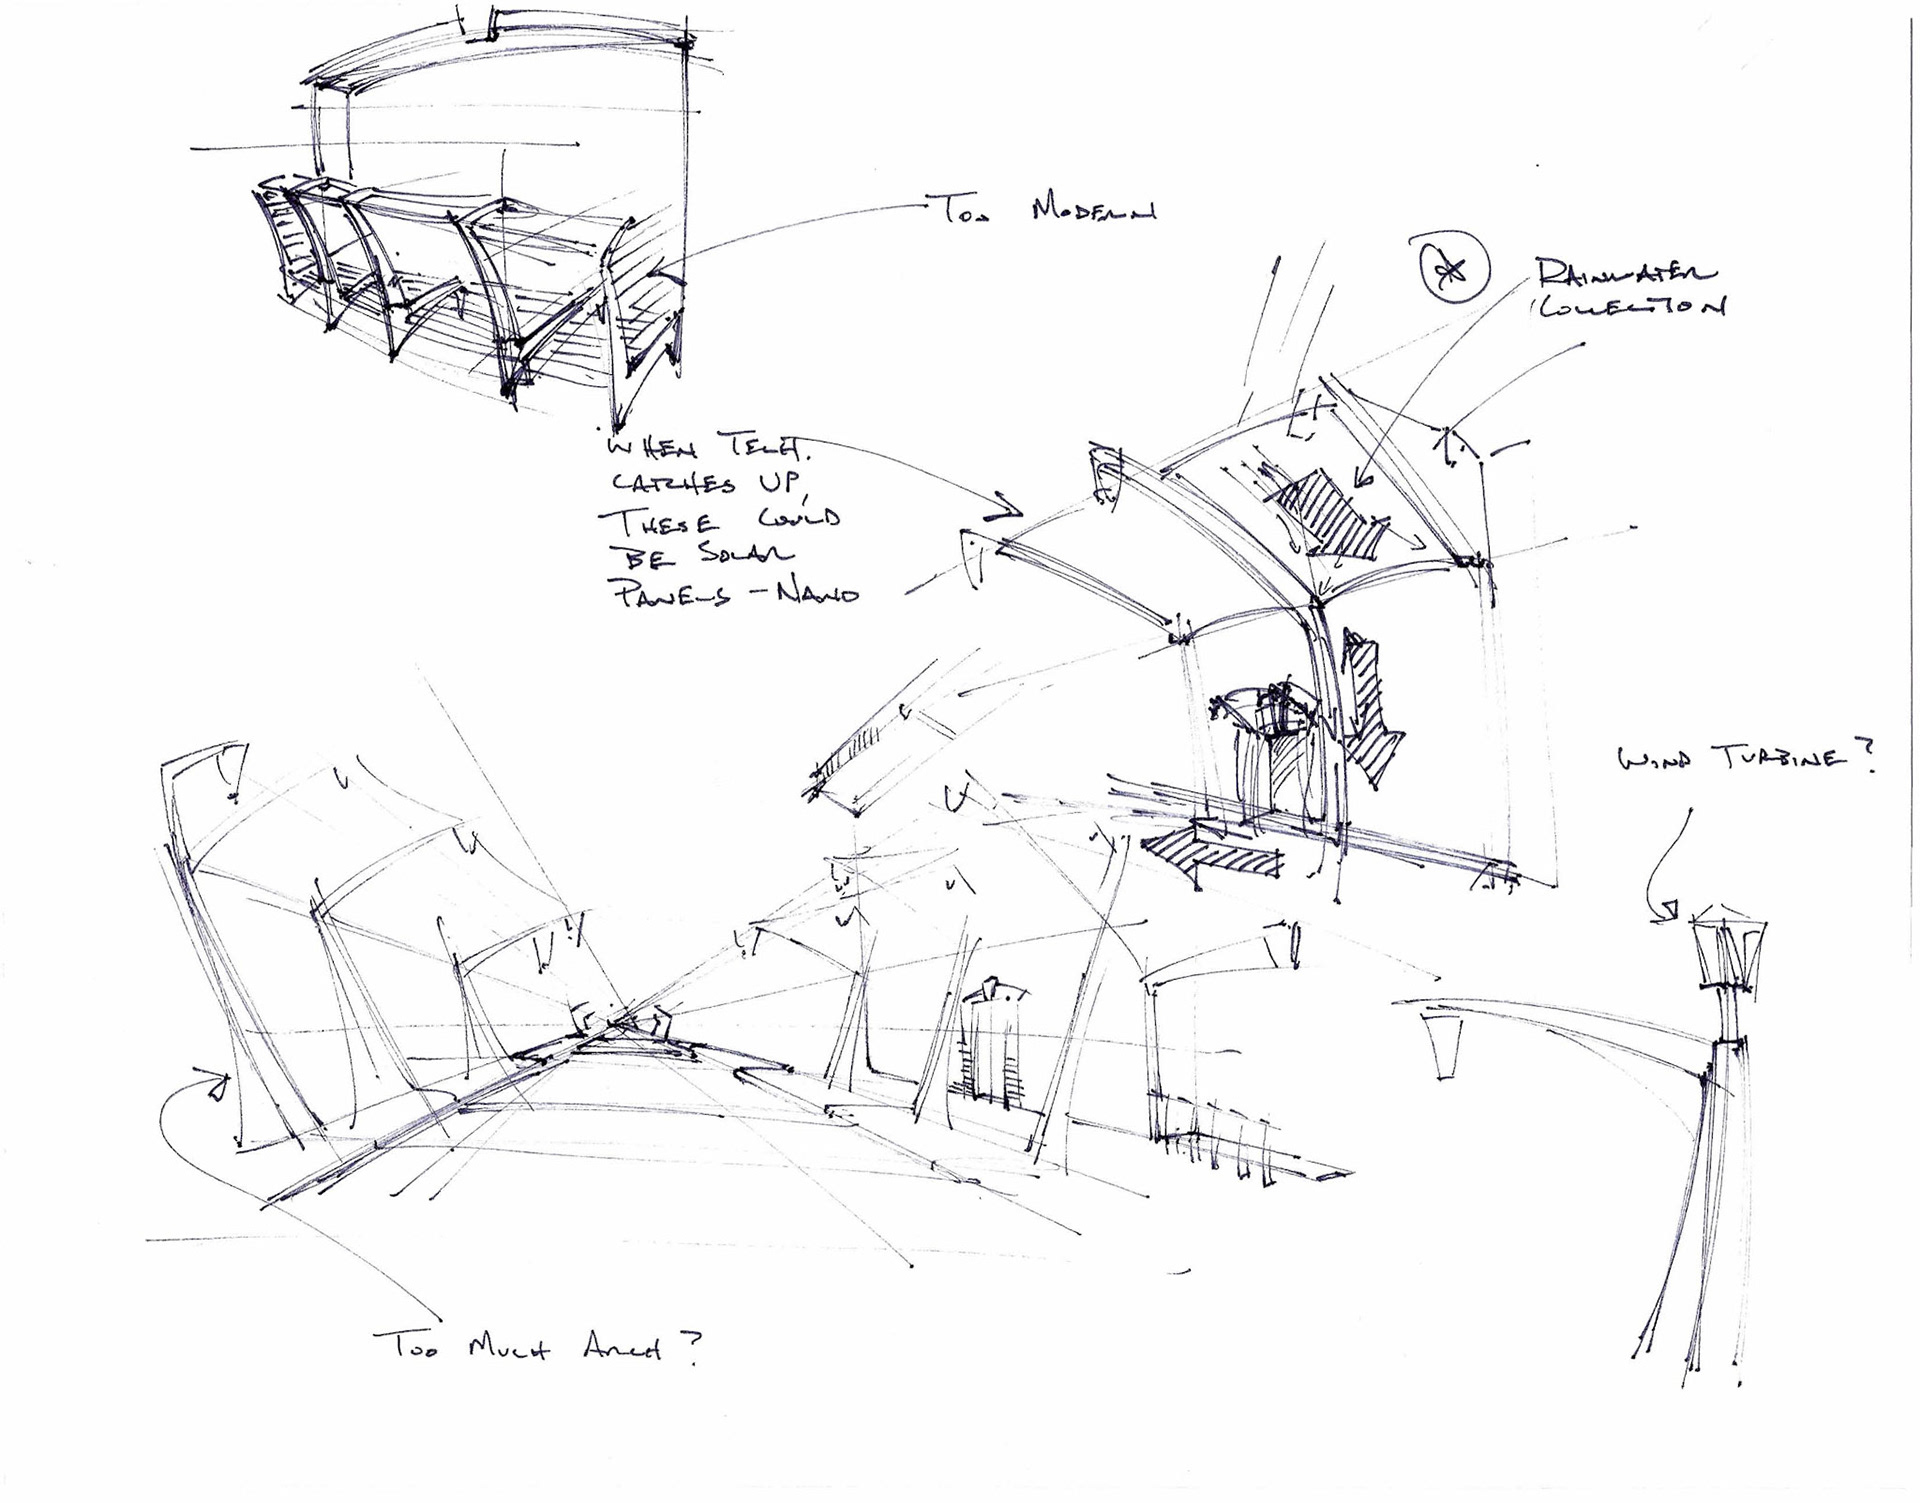 Too Modern
Rainwater
Collection
When Tech.
Catches Up,
These Could
Be Solar
Panels - Nano
Wind Turbine?
Too Much Arch?